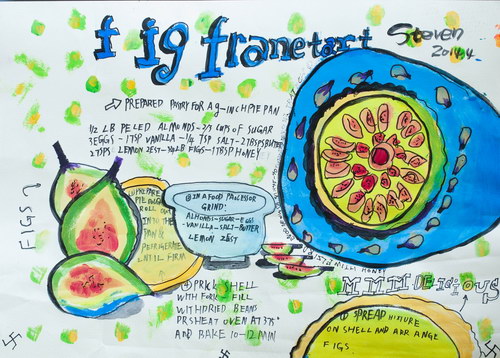 fig franetart
Steven
2014.4
PREPARED PASTRY FOR A 9-INCH PIE PAN
1/2 LB PELED ALMONDS-2/3 CUPS OF SUGAR
3 EGGS-1 TSP VANILLA-1/4 TSP SALT-2 TBSPS BUTTER
2 TSPS LEMON ZEST-3/4 LB FIGS-1 TBSP HONEY
FIGS
PREPARE
PIE DOUGH
ROLL OUT
INTO THE
PAN &
REFRIGERATE
UNTIL FIRM
② IN A FOOD PROCESSOR
GRIND:
ALMONDS-SUGAR-EGGS
-VANILLA-SALT-BUTTER
LEMON ZEST
① PRKK SHELL
WITH FORK-FILL
WITH DRIED BEANS
PRSHEAT OVEN AT 375°
AND BAKE 10-12 MIN
WITH HONEY
MMM DELICIOUS
③ SPREAD MIXTURE
ON SHELL AND ARR ANGE
FIGS